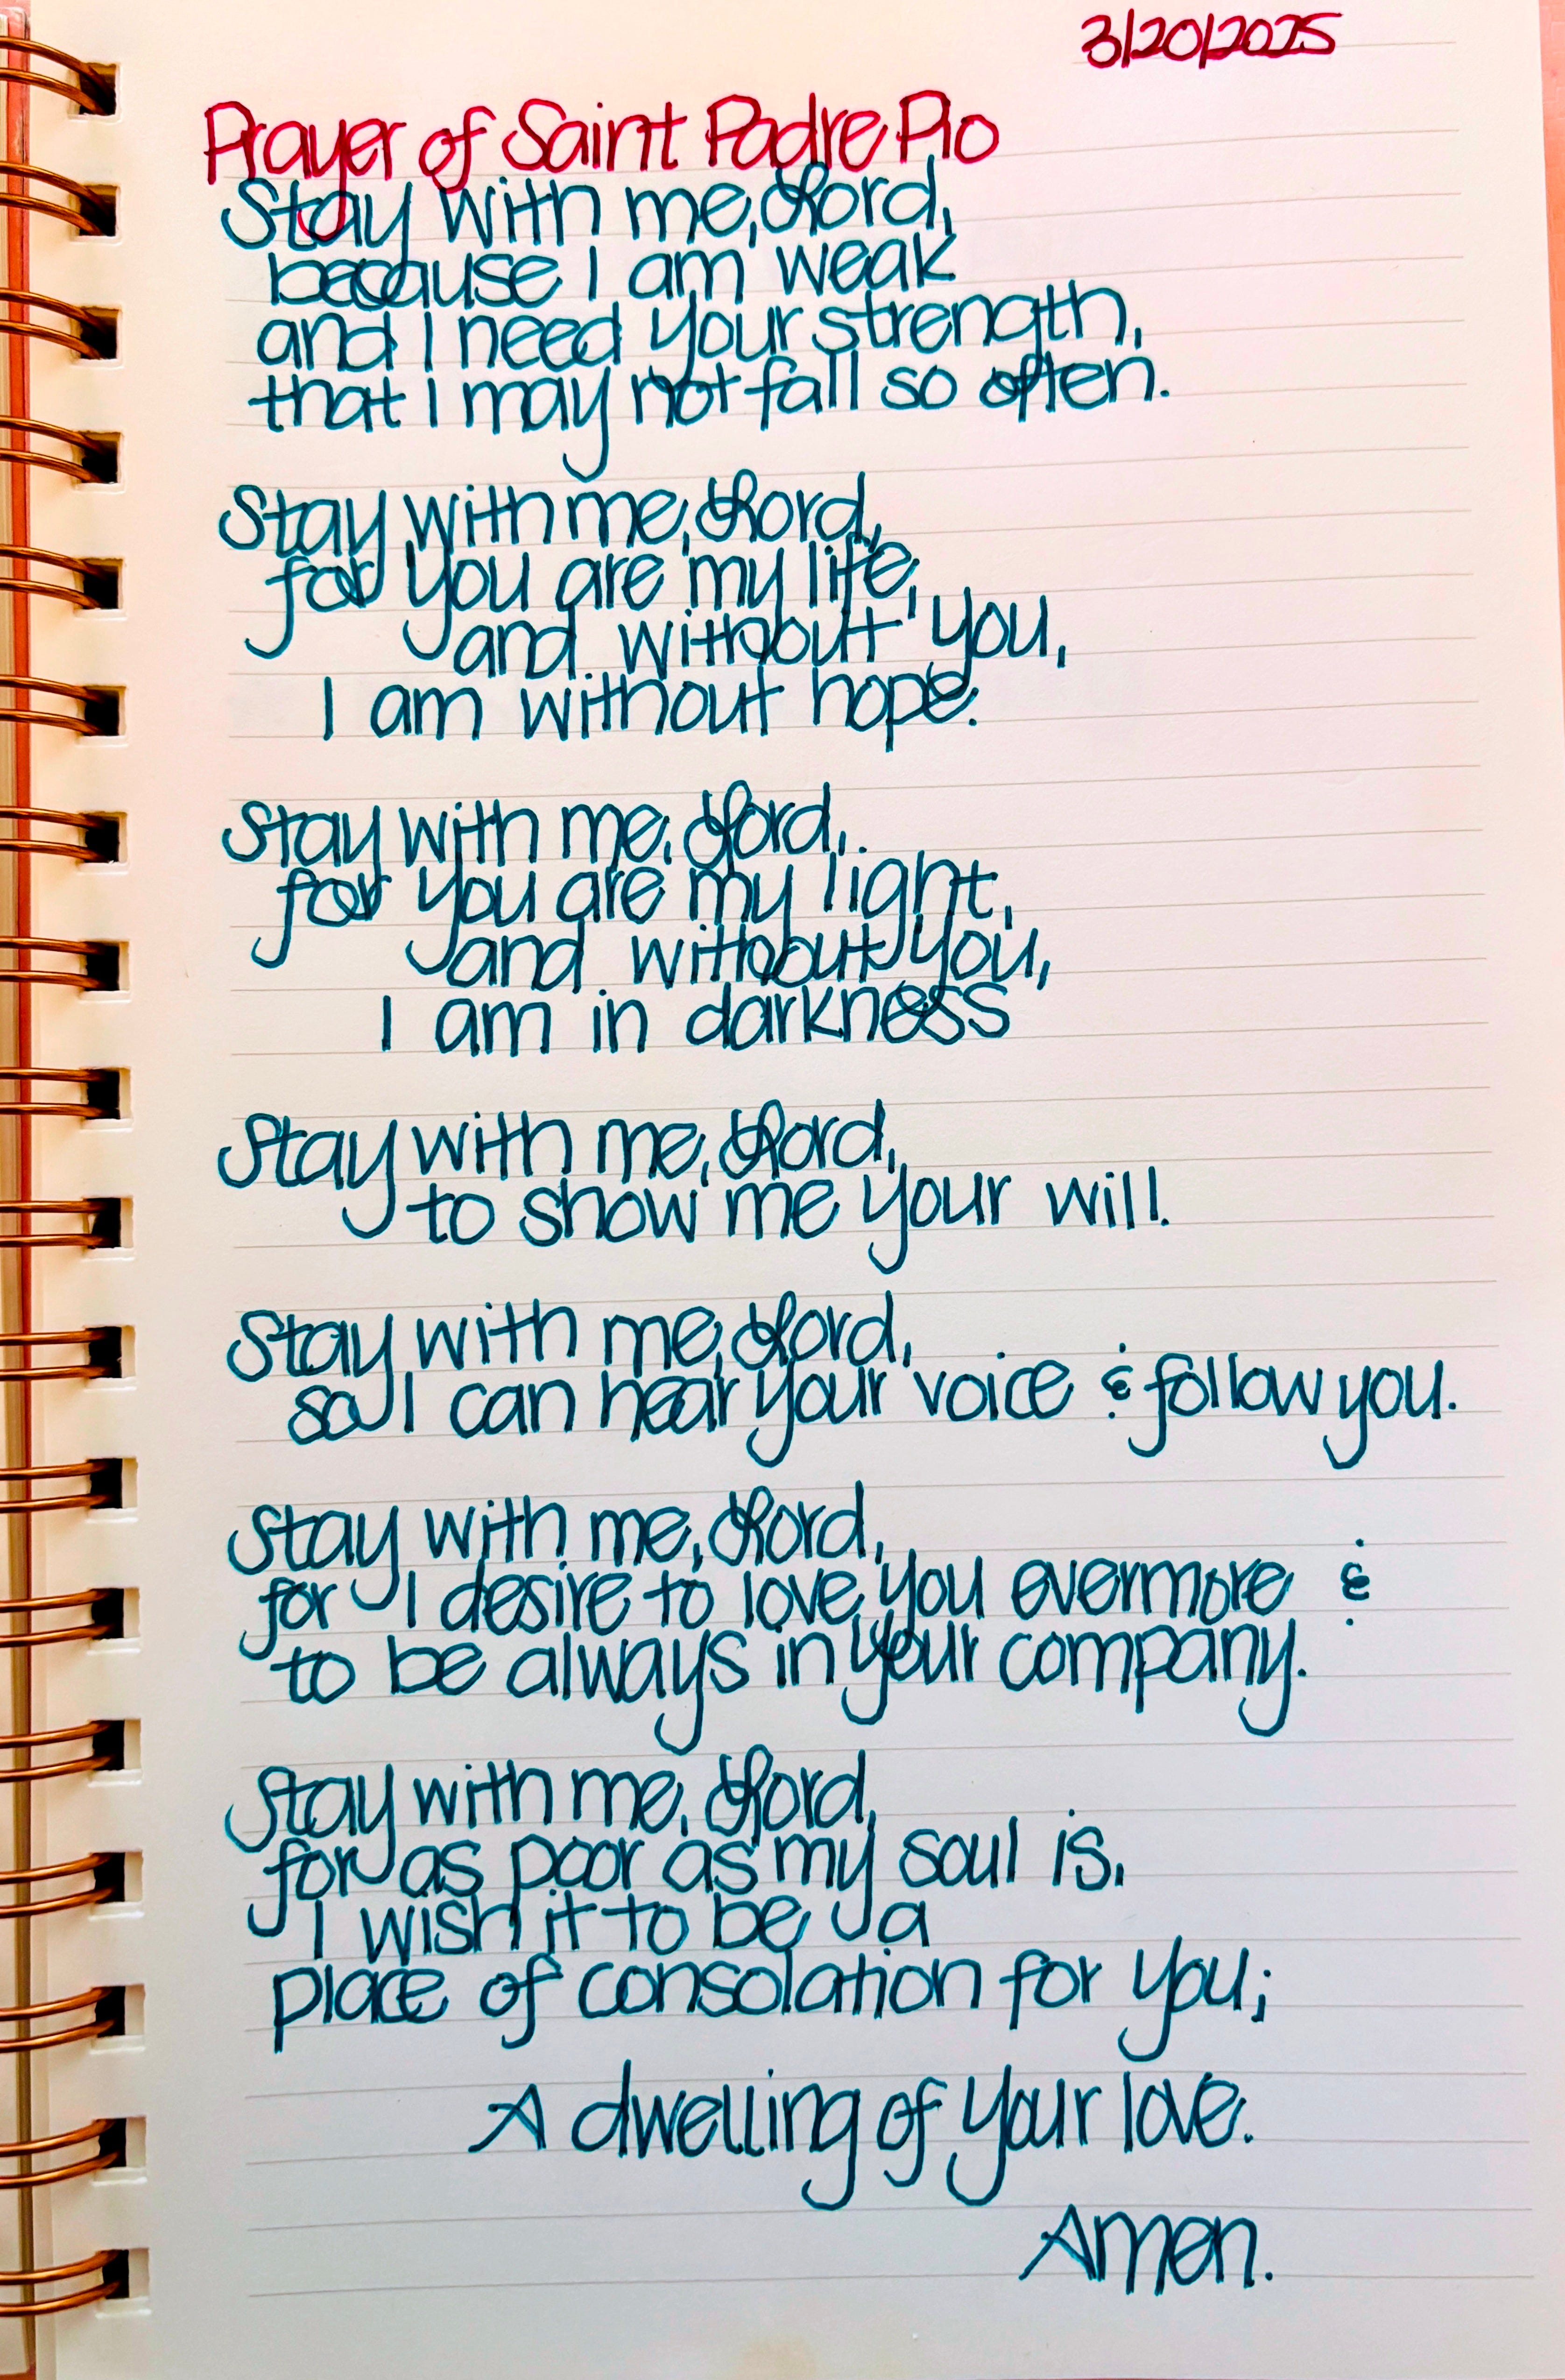 3/20/2025
Prayer of Saint Padre Pio
Stay with me, Lord,
because I am weak
and I need your strength,
that I may not fall so often.
Stay with me, Lord,
for you are my life,
and without you,
I am without hope.
Stay with me, Lord,.
for you are my light,
and without you,
I am in darkness
Stay with me, Lord,
to show me your will.
Stay with me, Lord,
so I can hear your voice & follow you.
Stay with me, Lord,
for I desire to love you evermore &
to be always in your company.
Stay with me, Lord,
for as poor as my soul is,
I wish it to be a
place of consolation for you;
A dwelling of your love.
Amen.